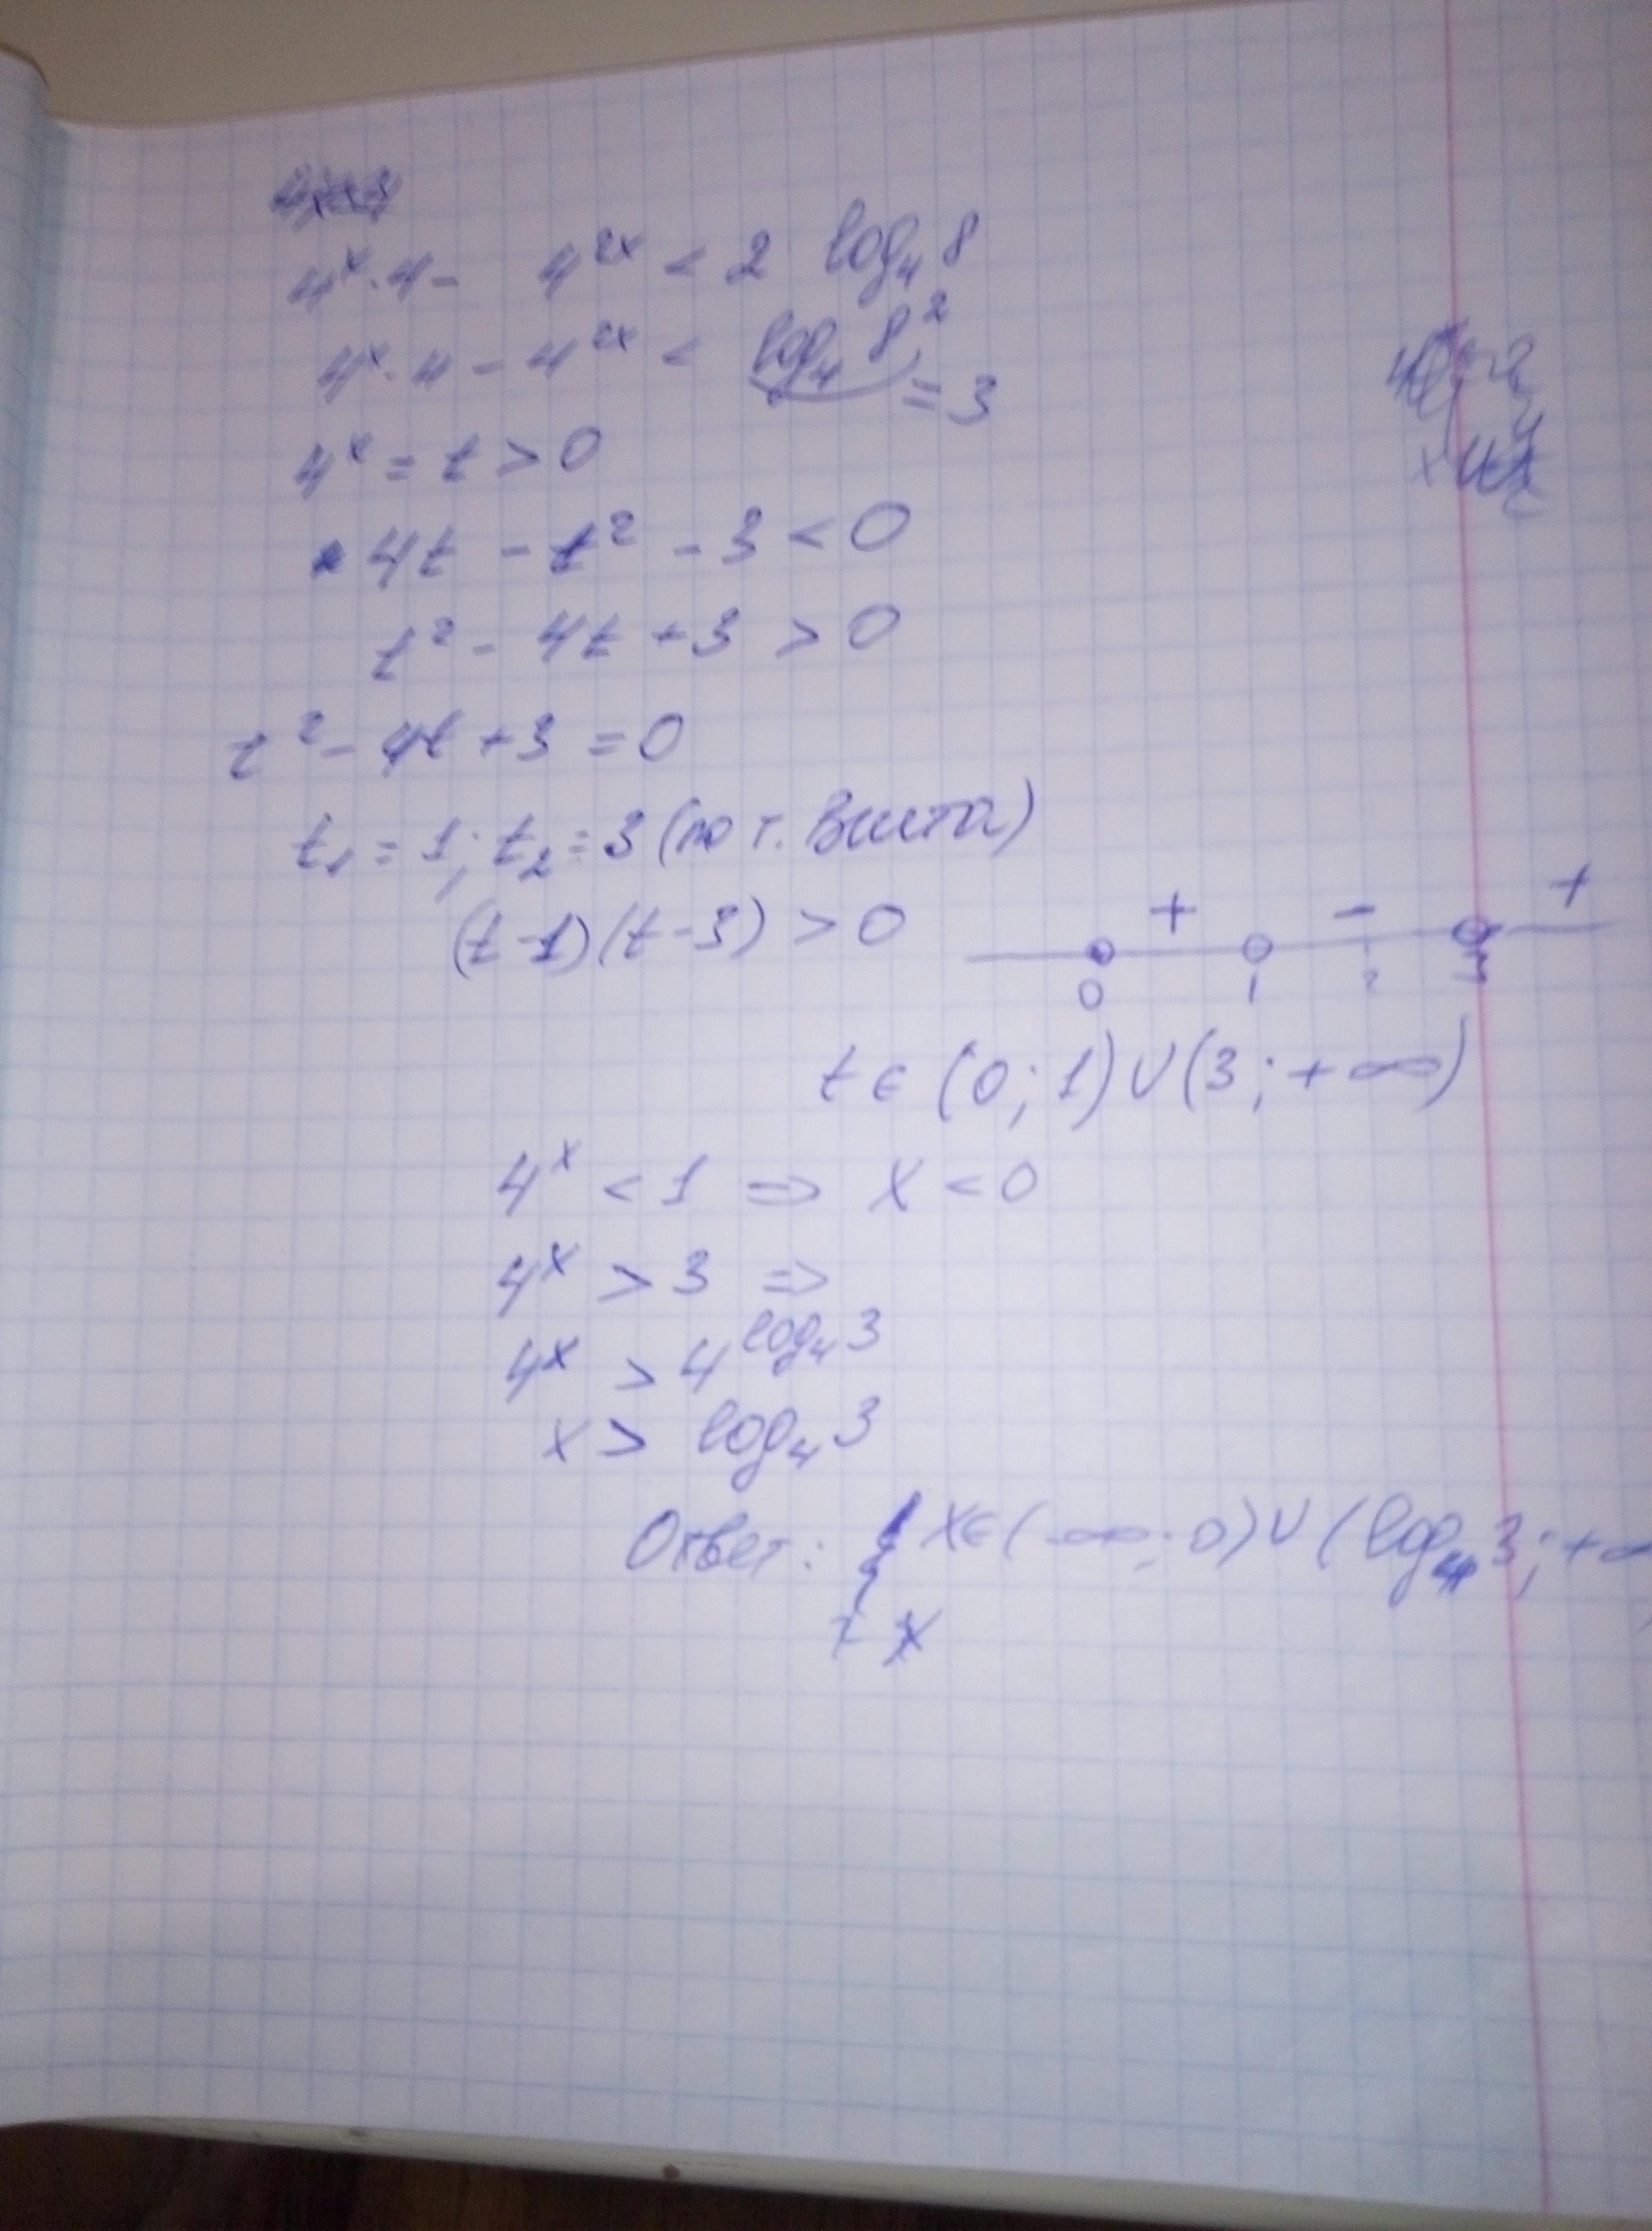 4ˣ·4 - 4²ˣ < 2 log₄ 8
4ˣ·4 - 4²ˣ < log₄ 8² = 3
4ˣ = t > 0
4t - t² - 3 < 0
t² - 4t + 3 > 0
t² - 4t + 3 = 0
t₁ = 1; t₂ = 3 (по т. Виета)
(t-1)(t-3) > 0
+ - +
0 1 2 3
t ∈ (0; 1) ∪ (3; +∞)
4ˣ < 1 ⇒ x < 0
4ˣ > 3 ⇒
4ˣ > 4^(log₄ 3)
x > log₄ 3
Ответ: x ∈ (-∞; 0) ∪ (log₄ 3; +∞